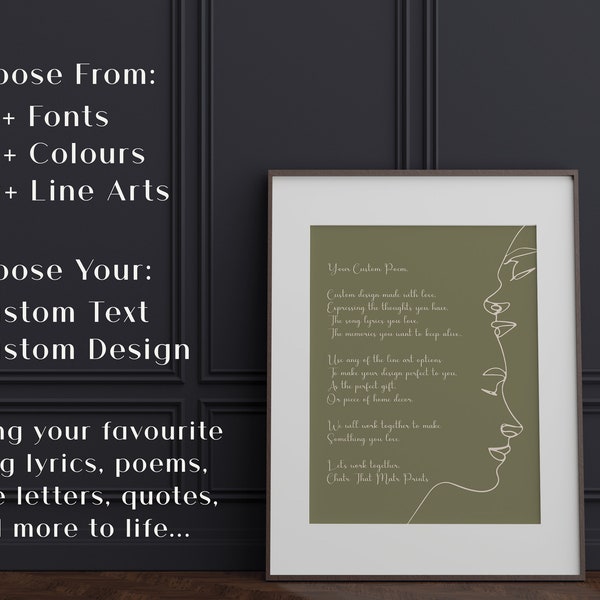 oose From:
+ Fonts
+ Colours
+ Line Arts
oose Your:
stom Text
stom Design
ng your favourite
g lyrics, poems,
e letters, quotes,
l more to life...
Your Custom Poem.
Custom design made with love.
Expressing the thoughts you have.
The song lyrics you love.
The memories you want to keep alive.
Use any of the line art options
To make your design perfect to you,
As the perfect gift.
Or piece of home decor.
We will work together to make
Something you love
Let's work together.
Chatx That Matx Prints